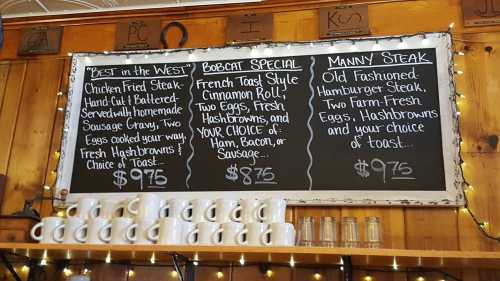 "Best in the West"
Chicken Fried Steak-
Hand-Cut & Battered-
Served with homemade
Sausage Gravy, Two
Eggs cooked your way,
Fresh Hashbrowns &
Choice of Toast...
$9.75
Bobcat Special
French Toast Style
Cinnamon Roll,
Two Eggs, Fresh
Hashbrowns, and
YOUR CHOICE of:
Ham, Bacon, or
Sausage...
$8.75
Manny Steak
Old Fashioned
Hamburger Steak,
Two Farm-Fresh
Eggs, Hashbrowns
and your choice
of toast...
$9.75
PC
KS